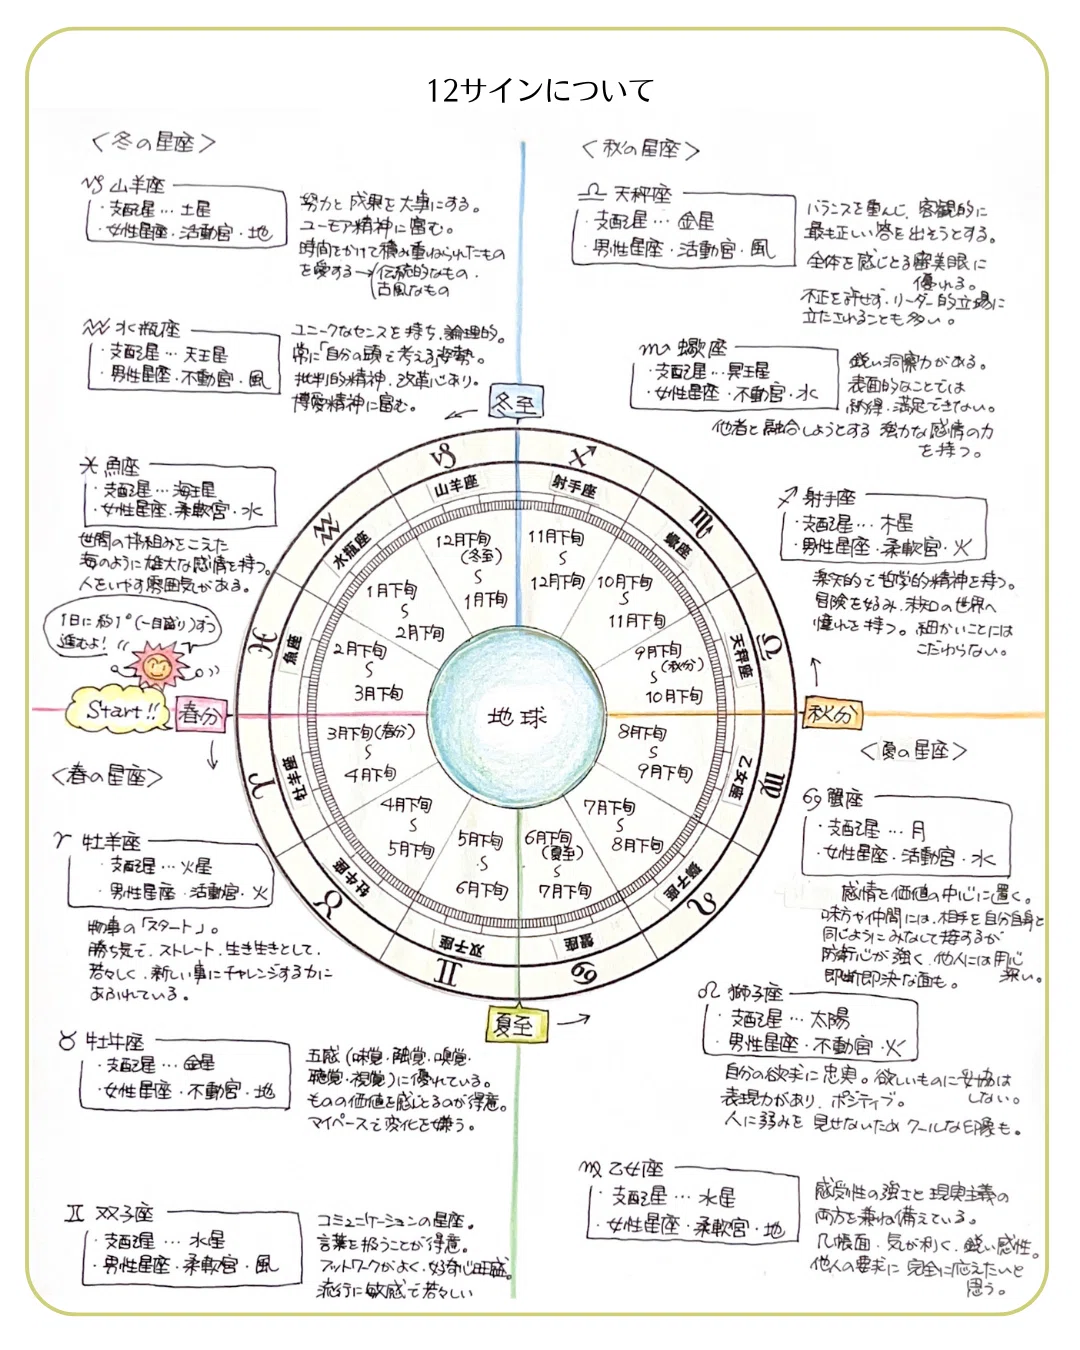 12サインについて
〈冬の星座〉
♑ 山羊座
・支配星…土星
・女性星座・活動宮・地
努力と成果を大事にする。
ユーモア精神に富む。
時間をかけて積み重ねられたもの
を愛する→(伝統的なもの・
古風なもの
♒ 水瓶座
・支配星…天王星
・男性星座・不動宮・風
ユニークなセンスを持ち、論理的。
常に「自分の頭で考える」姿勢。
批判的精神、改革心あり。
博愛精神に富む。
♓ 魚座
・支配星…海王星
・女性星座・柔軟宮・水
世間の枠組みをこえた
海のように雄大な感情を持つ。
人をいやす雰囲気がある。
〈秋の星座〉
♎ 天秤座
・支配星…金星
・男性星座・活動宮・風
バランスを重んじ、客観的に
最も正しい答を出そうとする。
全体を感じとる審美眼に
優れる。
不正を許せず、リーダー的立場に
立たされることも多い。
♏ 蠍座
・支配星…冥王星
・女性星座・不動宮・水
鋭い洞察力がある。
表面的なことでは
納得、満足できない。
他者と融合しようとする 強力な感情の力
を持つ。
♐ 射手座
・支配星…木星
・男性星座・柔軟宮・火
楽天的で哲学的精神を持つ。
冒険を好み、未知の世界へ
憧れを持つ。細かいことには
こだわらない。
冬至
♑ ♐
山羊座 射手座
♒ ♏
水瓶座 蠍座
♓ ♎
魚座 天秤座
12月下旬
(冬至)
〜
1月下旬
11月下旬
〜
12月下旬
1月下旬
〜
2月下旬
10月下旬
〜
11月下旬
2月下旬
〜
3月下旬
9月下旬
(秋分)
〜
10月下旬
1日に約1°(一目盛り)ずつ
進むよ!
Start!!
春分
地球
秋分
3月下旬(春分)
〜
4月下旬
8月下旬
〜
9月下旬
4月下旬
〜
5月下旬
7月下旬
〜
8月下旬
5月下旬
〜
6月下旬
6月下旬
(夏至)
〜
7月下旬
♈ ♍
牡羊座 乙女座
♉ ♌
牡牛座 獅子座
♊ ♋
双子座 蟹座
夏至
〈春の星座〉
♈ 牡羊座
・支配星…火星
・男性星座・活動宮・火
物事の「スタート」。
勝ち気で、ストレート、生き生きとして、
若々しく、新しい事にチャレンジする力に
あふれている。
♉ 牡牛座
・支配星…金星
・女性星座・不動宮・地
五感(味覚・触覚・嗅覚・
聴覚・視覚)に優れている。
ものの価値を感じとるのが得意。
マイペースで変化を嫌う。
♊ 双子座
・支配星…水星
・男性星座・柔軟宮・風
コミュニケーションの星座。
言葉を扱うことが得意。
フットワークがよく、好奇心旺盛。
流行に敏感で若々しい
〈夏の星座〉
♋ 蟹座
・支配星…月
・女性星座・活動宮・水
感情を価値の中心に置く。
味方や仲間には、相手を自分自身と
同じようにみなして接するが
防衛心が強く、他人には用心
深い。
即断即決な面も。
♌ 獅子座
・支配星…太陽
・男性星座・不動宮・火
自分の欲求に忠実。欲しいものに妥協は
しない。
表現力があり、ポジティブ。
人に弱みを見せないため クールな印象も。
♍ 乙女座
・支配星…水星
・女性星座・柔軟宮・地
感受性の強さと現実主義の
両方を兼ね備えている。
几帳面、気が利く、鋭い感性。
他人の要求に完全に応えたいと
思う。